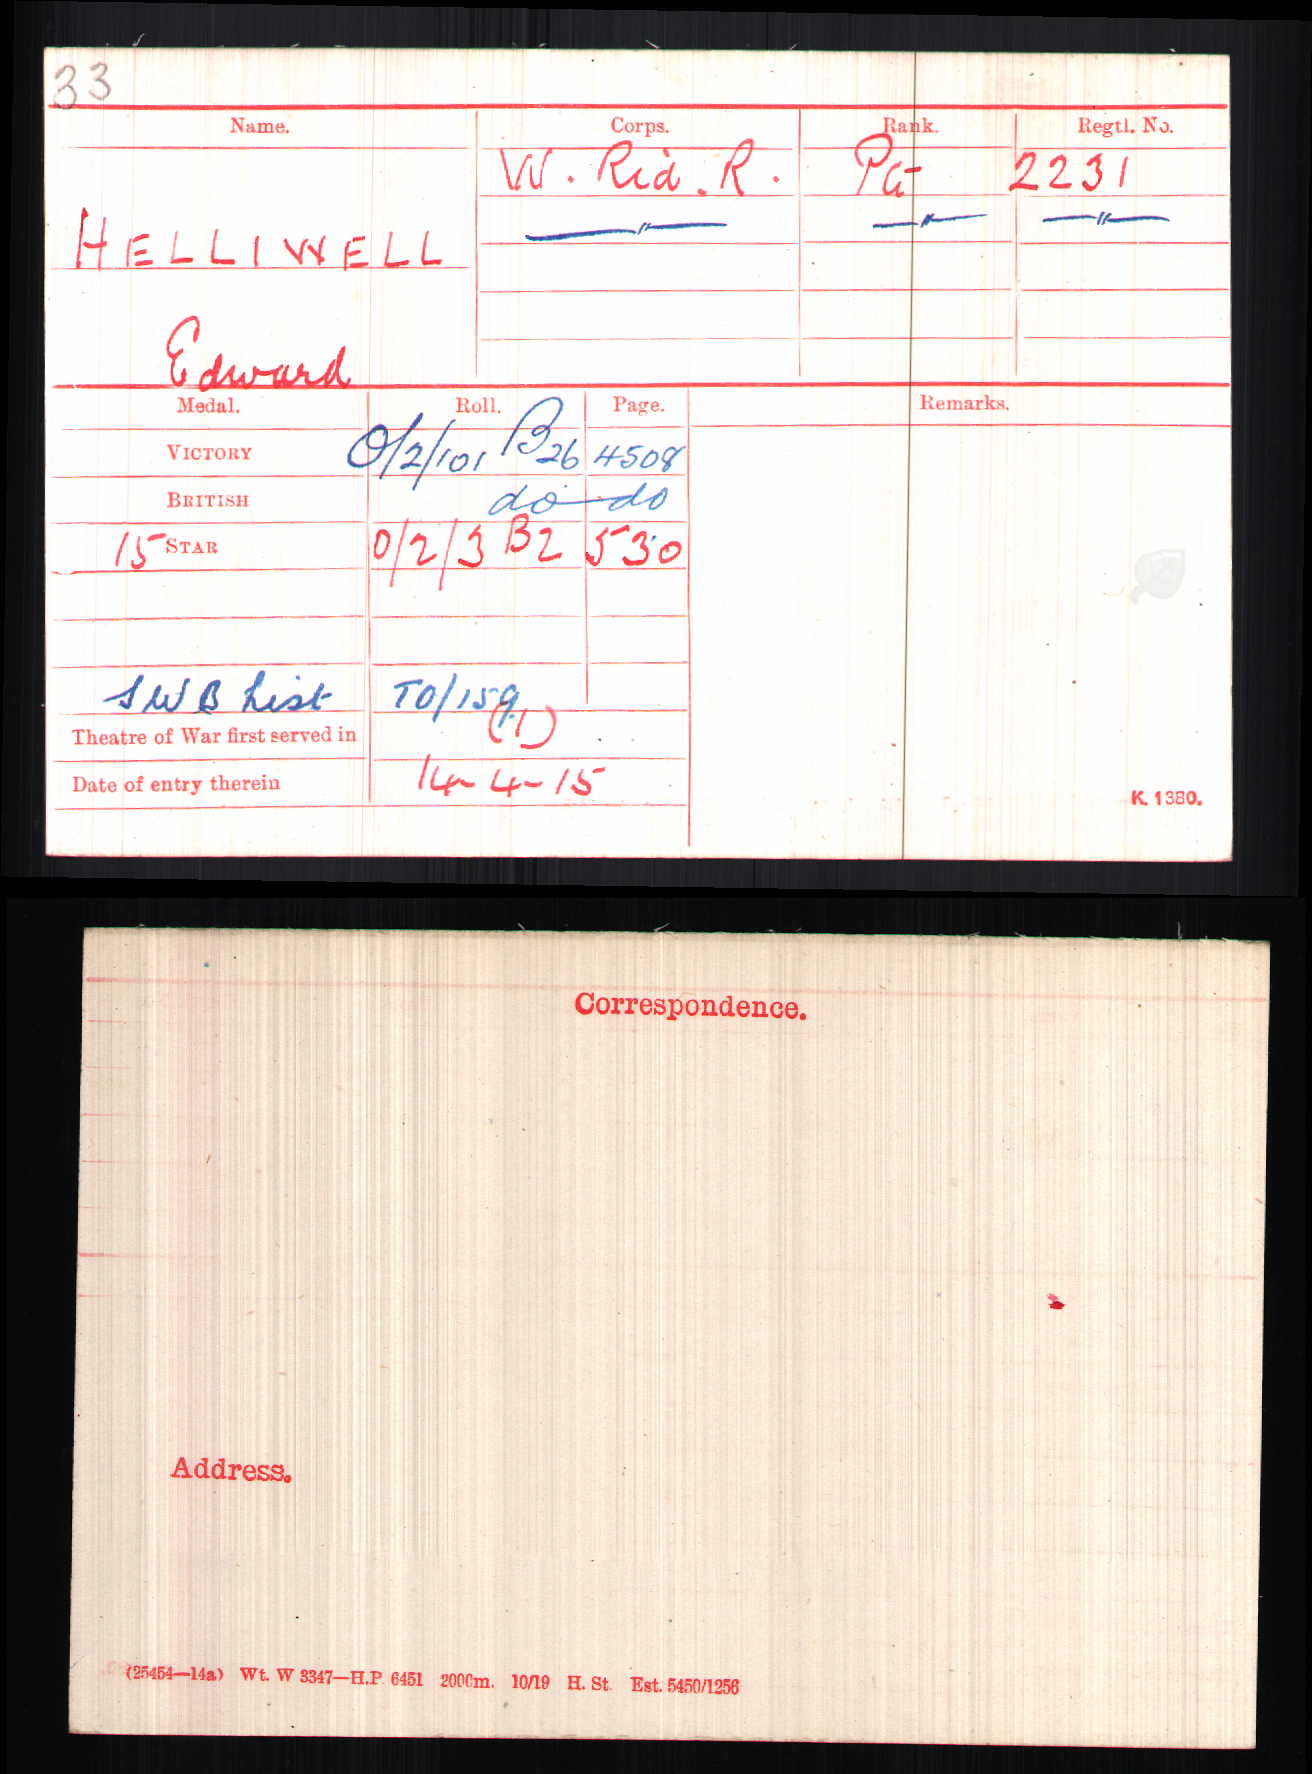 33
Name. Corps. Rank. Regtl. No.
W. Rid. R. Pte 2231
—〃— —〃— —〃—
HELLIWELL
Edward
Medal. Roll. Page. Remarks.
VICTORY O/2/101 B26 4508
BRITISH do do
15 STAR O/2/3 B2 530
SWB List TO/159
Theatre of War first served in (1)
Date of entry therein 14-4-15
K. 1380.
Correspondence.
Address.
(25454—14a) Wt. W 3347—H.P 6451 2000m. 10/19 H. St. Est. 5450/1256